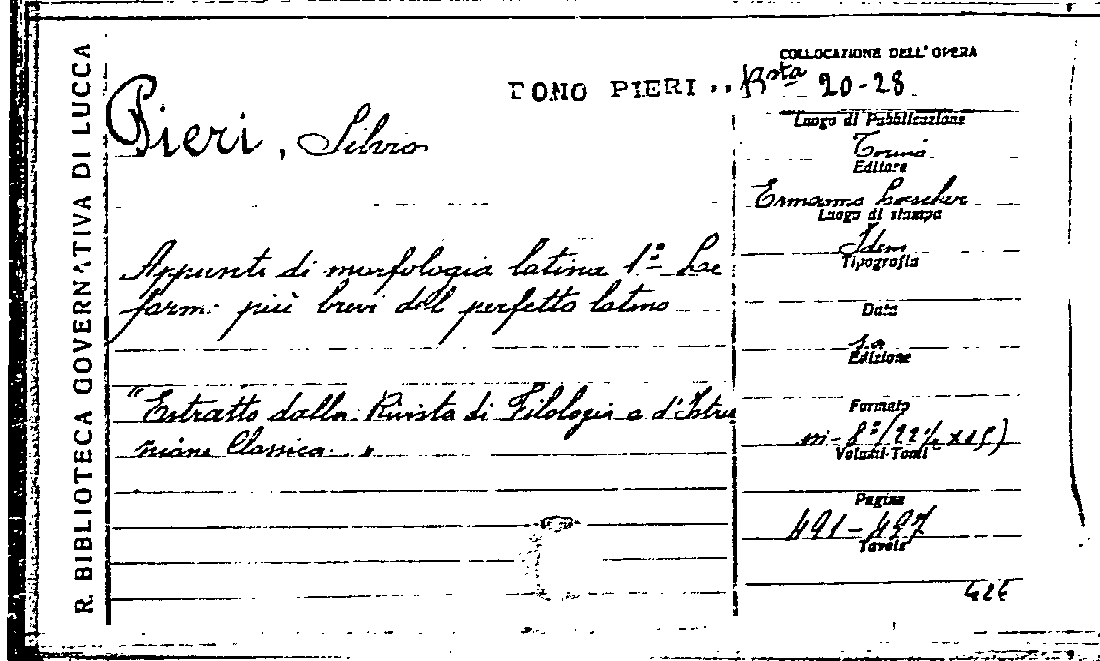 R. BIBLIOTECA GOVERNATIVA DI LUCCA
DONO PIERI
Pieri, Silvio
Appunti di morfologia latina 1º Le
forme più brevi del perfetto latino
"Estratto dalla Rivista di Filologia e d'Istru
zione Classica. "
COLLOCAZIONE DELL' OPERA
Bsta 20-28
Luogo di Pubblicazione
Torino
Editore
Ermanno Loescher
Luogo di stampa
Idem
Tipografia
Data
s.a
Edizione
Formato
in-8º
Volumi-Tomi
Pagine
491-497
Tavole